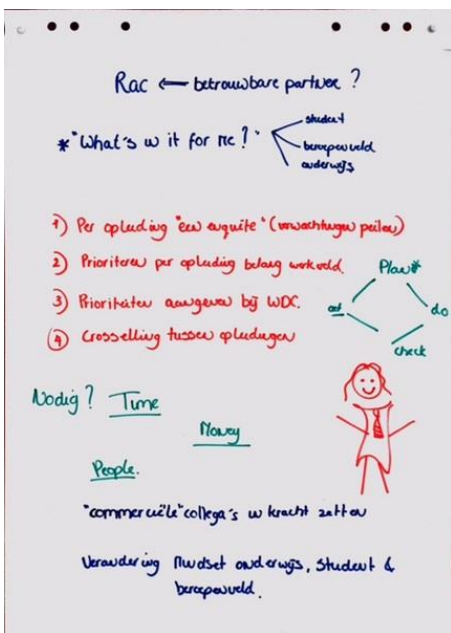 Rac ← betrouwbare partner ?
* "What's in it for me ?"
student
beroepenveld
onderwijs
1) Per opleiding "een enquête" (verwachtingen peilen)
2) Prioriteren per opleiding belang werkveld.
3) Prioriteiten aangeven bij WDC.
4) Crosselling tussen opleidingen
Plan*
do
check
act
Nodig ? Time
Money
People.
"commerciële" collega's in kracht zetten
Verandering Mindset onderwijs, student &
beroepenveld.